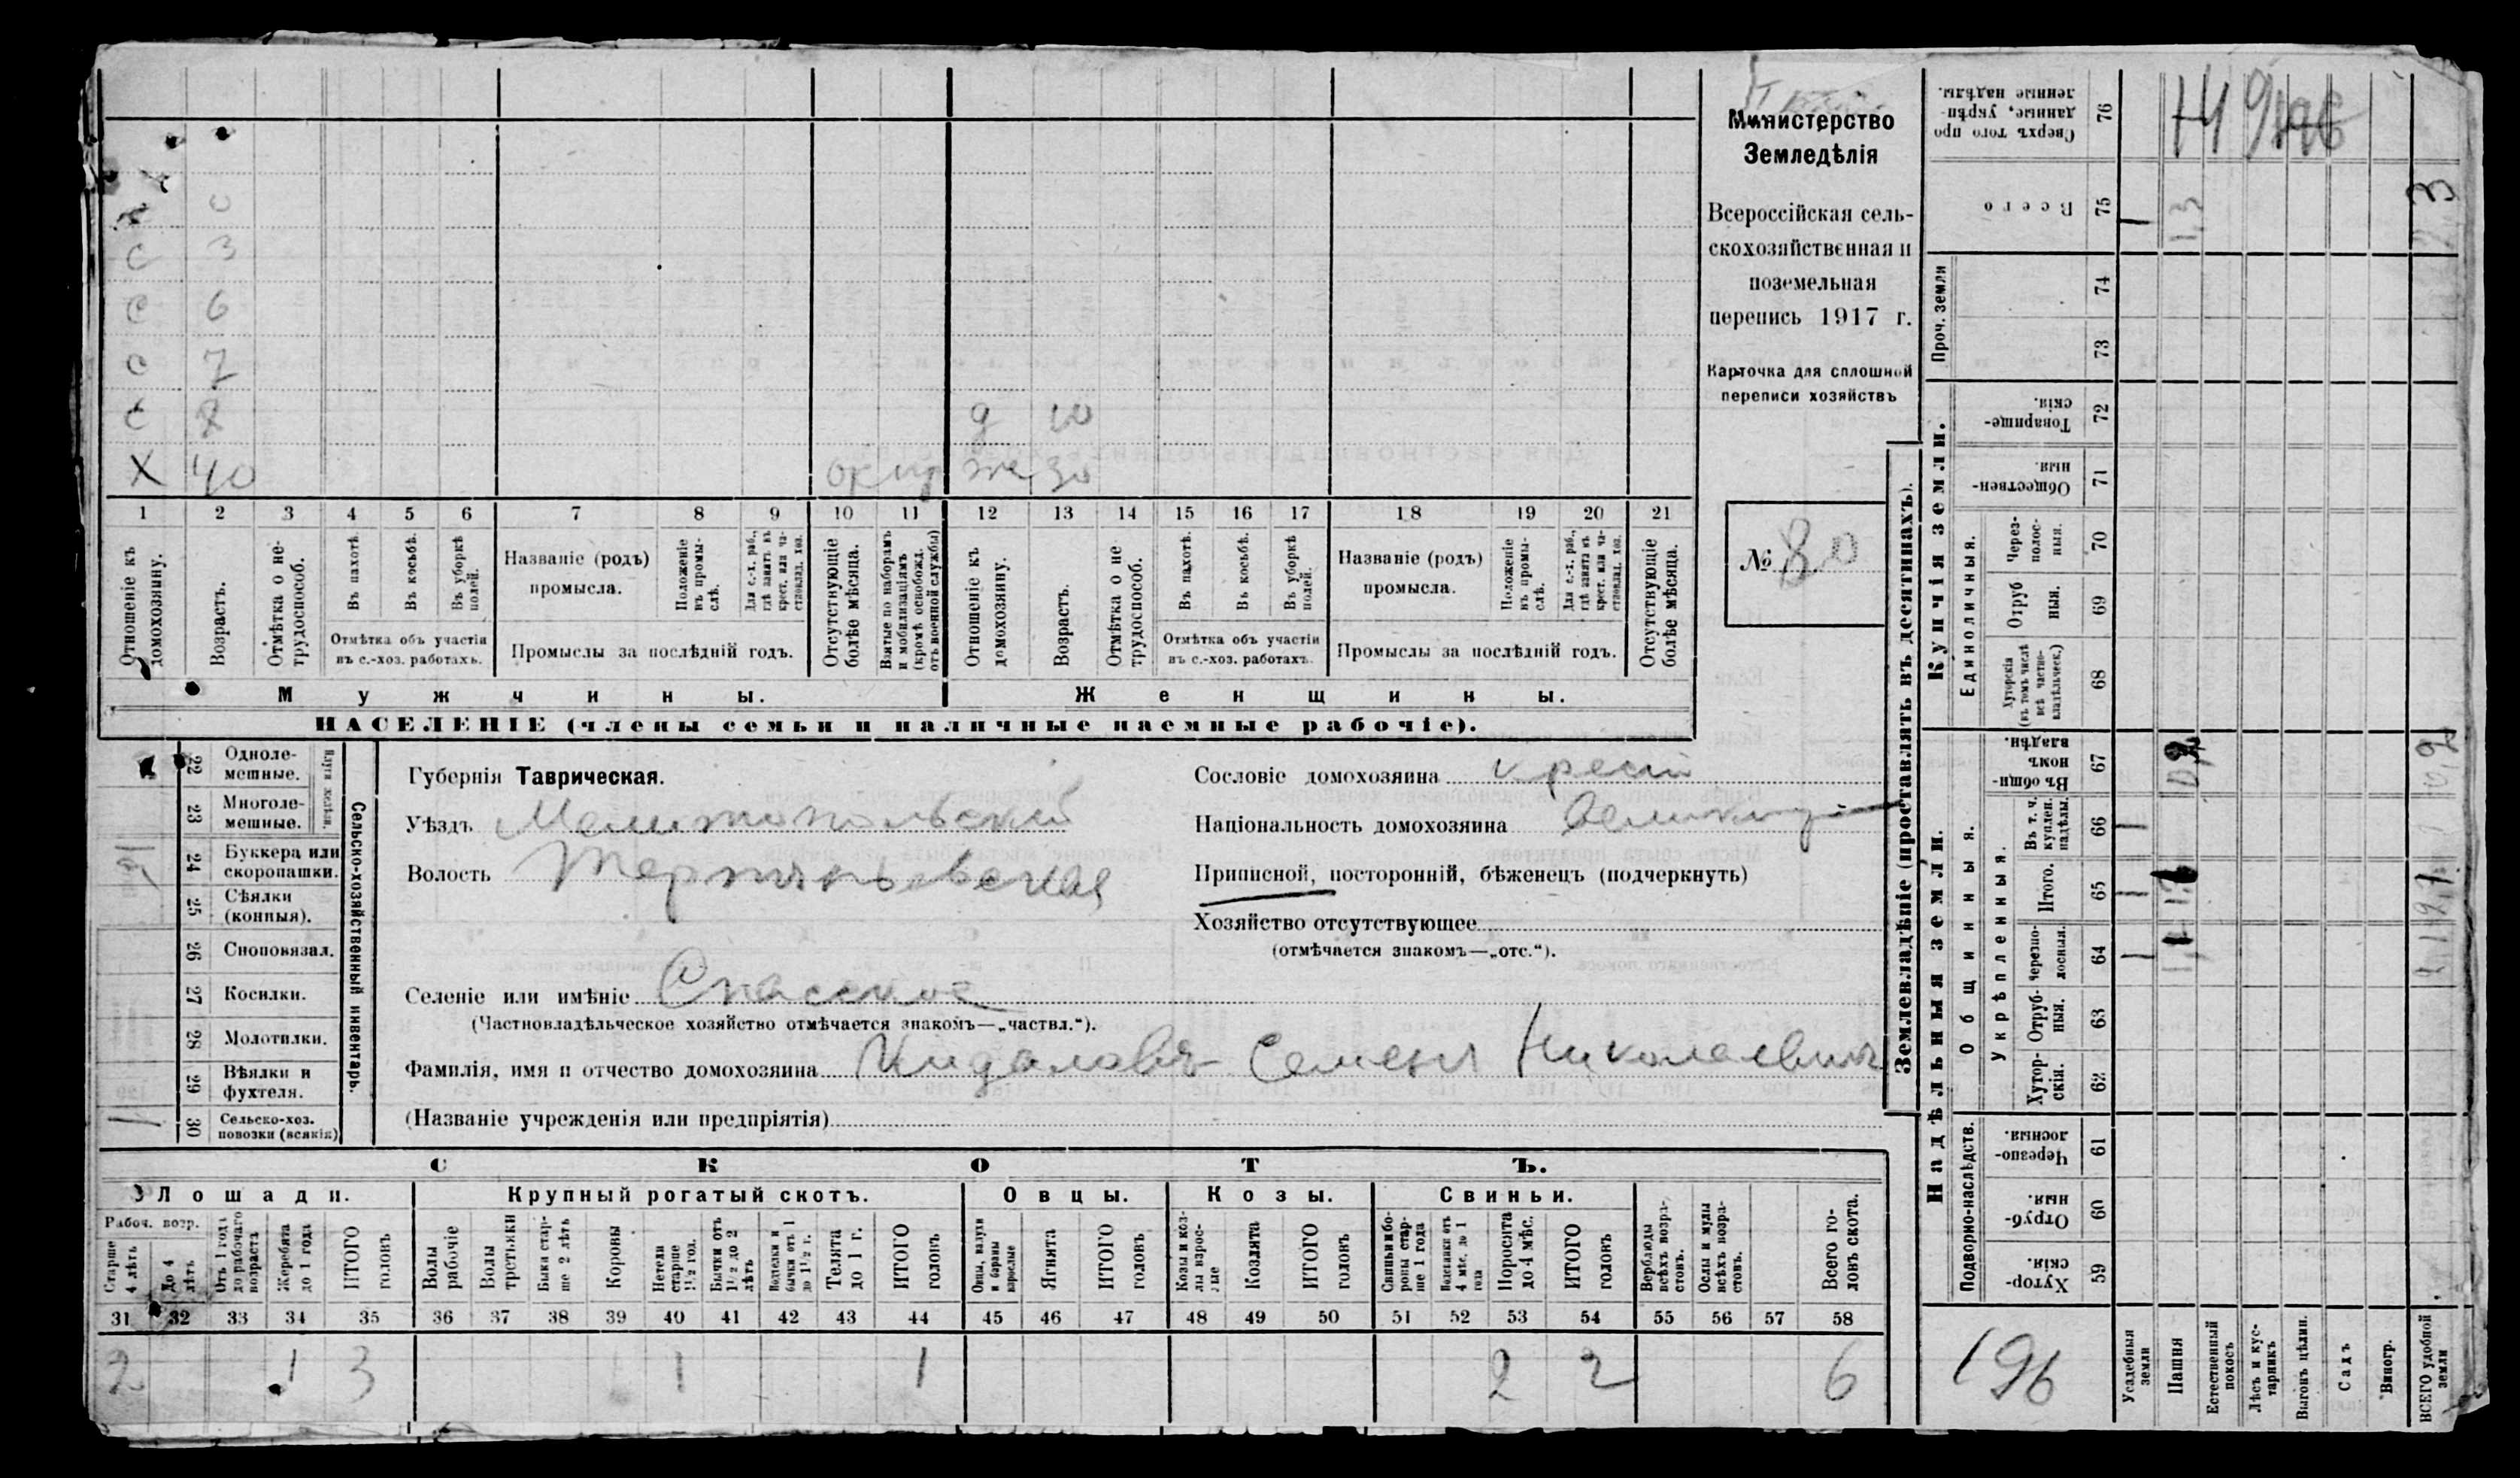 Министерство
Земледѣлія
Всероссійская сель-
скохозяйственная и
поземельная
перепись 1917 г.
Карточка для сплошной
переписи хозяйствъ
№ 80
С 3
С 6
С 7
С 8 д 10
Х 40 же 30
1 2 3 4 5 6 7 8 9 10 11 12 13 14 15 16 17 18 19 20 21
Отношеніе къ домохозяину.
Возрастъ.
Отмѣтка о не-трудоспособ.
Въ пахотѣ.
Въ косьбѣ.
Въ уборкѣ полей.
Отмѣтка объ участіи
въ с.-хоз. работахъ.
Названіе (родъ)
промысла.
Положеніе въ промы-слѣ.
Для с.-х. раб., гдѣ занятъ въ крест. или ча-стновлад. хоз.
Промыслы за послѣдній годъ.
Отсутствующіе болѣе мѣсяца.
Взятые по наборамъ и мобилизаціямъ (кромѣ освобожд. отъ военной службы)
Отношеніе къ домохозяину.
Возрастъ.
Отмѣтка о не трудоспособ.
Въ пахотѣ.
Въ косьбѣ.
Въ уборкѣ полей.
Отмѣтка объ участіи
въ с.-хоз. работахъ.
Названіе (родъ)
промысла.
Положеніе въ промы-слѣ.
Для с.-х. раб., гдѣ занятъ въ крест. или ча-стновлад. хоз.
Промыслы за послѣдній годъ.
Отсутствующіе болѣе мѣсяца.
Мужчины.
Женщины.
НАСЕЛЕНІЕ (члены семьи и наличные наемные рабочіе).
22 Одноле-
мешные.
23 Многоле-
мешные.
24 Буккера или
скоропашки.
25 Сѣялки
(конныя).
26 Сноповязал.
27 Косилки.
28 Молотилки.
29 Вѣялки и
фухтеля.
1 30 Сельско-хоз.
повозки (всякія)
Плуги желѣзн.
Сельско-хозяйственный инвентарь.
Губернія Таврическая.
Уѣздъ Мелитопольскій
Волость
Селеніе или имѣніе Спасское
(Частновладѣльческое хозяйство отмѣчается знакомъ—„частвл.“).
Фамилія, имя и отчество домохозяина Семенъ Николаевич
(Названіе учрежденія или предпріятія)
Сословіе домохозяина крест
Національность домохозяина
Приписной, посторонній, бѣженецъ (подчеркнуть)
Хозяйство отсутствующее
(отмѣчается знакомъ—„отс.“).
СКОТЪ.
Лошади.
Крупный рогатый скотъ.
Овцы.
Козы.
Свиньи.
Рабоч. возр.
Старше 4 лѣтъ
До 4 лѣтъ
Отъ 1 года до рабочаго возраста
Жеребята до 1 года
ИТОГО головъ
Волы рабочіе
Волы третьяки
Быки стар-ше 2 лѣтъ
Коровы
Нетели старше 1½ год.
Бычки отъ 1½ до 2 лѣтъ
Телята до 1 г.
ИТОГО головъ
Ягнята
ИТОГО головъ
Козы и коз-лы взрос-лые
Козлята
ИТОГО головъ
Свиньи и бо-ровы стар-ше 1 года
Подсвинки отъ 4 мѣс. до 1 года
Поросята до 4 мѣс.
ИТОГО головъ
Верблюды всѣхъ возра-стовъ.
Ослы и мулы всѣхъ возра-стовъ.
Всего го-ловъ скота.
31 32 33 34 35 36 37 38 39 40 41 42 43 44 45 46 47 48 49 50 51 52 53 54 55 56 57 58
2 1 3 1 1 2 2 6
Землевладѣніе (проставлять въ десятинахъ).
Надѣльныя земли.
Купчія земли.
Проч. земли
Подворно-наслѣдств.
Общинныя.
Укрѣпленныя.
Единоличныя.
Сверхъ того про
данные, укрѣп-
ленные надѣлы.
76
Всего 75
74
73
Товарище-
скія. 72
Обществен-
ныя. 71
Через-
полос-
ныя. 70
Отруб
ныя. 69
Хуторскія
(въ томъ числѣ
всѣ частно-
владѣльческ.) 68
Въ общи-
номъ
владѣн. 67
Въ т. ч.
куплен.
надѣлы. 66
Итого. 65
Черезпо-
лосныя. 64
Отруб-
ныя. 63
Хутор-
скія. 62
Черезпо-
лосныя. 61
Отруб-
ныя. 60
Хутор-
скія. 59
196
Усадебныя земли
Пашня
Естественный покосъ
Лѣсъ и кус-тарникъ
Выгонъ цѣлин.
Садъ
Виногр.
ВСЕГО удобной земли